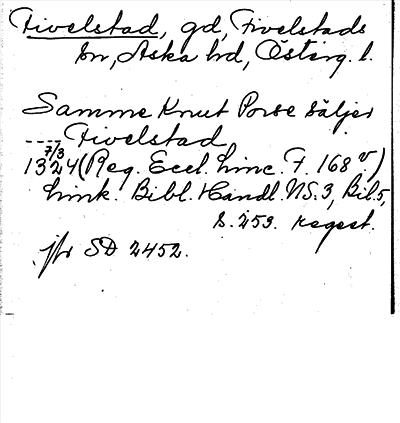 Fivelstad, gd, Fivelstads
sn, Aska hd, Österg. l.
Samme Knut Porse säljer
---- Fivelstad
7/3
1324 (Reg. Eccl. Linc. F. 168 v)
Link. Bibl. Handl. NS. 3, Bil. 5,
s. 253. regest.
jfr SD 2452.